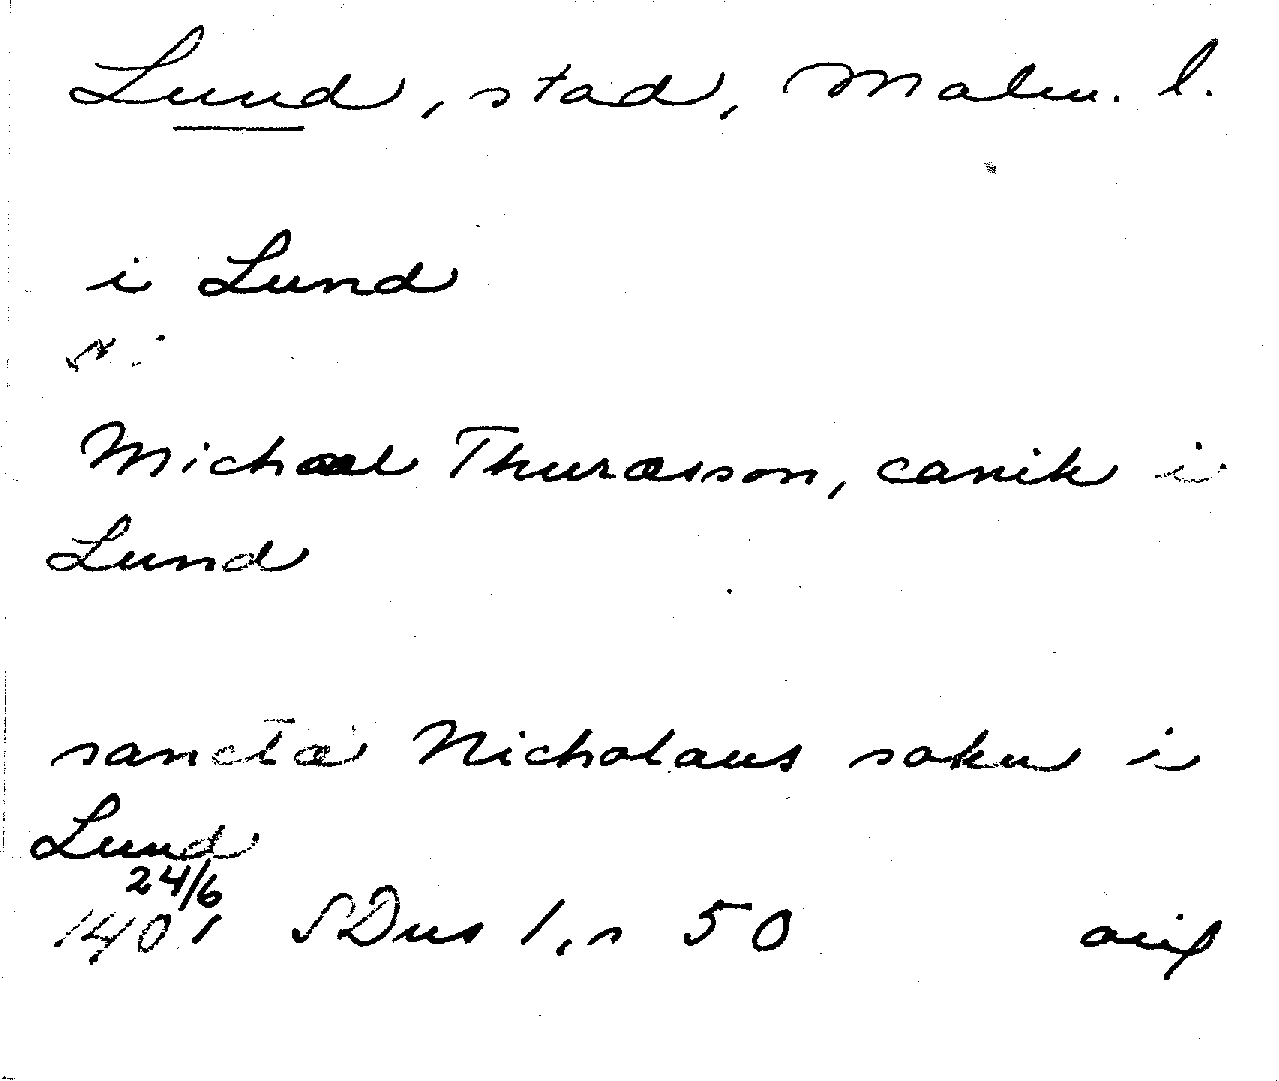 Lund, stad, Malm. l.
i Lund
Michael Thuræsson, canik i
Lund
sanctæ Nicholaus sokn i
Lund
24/6
1401 SDns 1, s 50